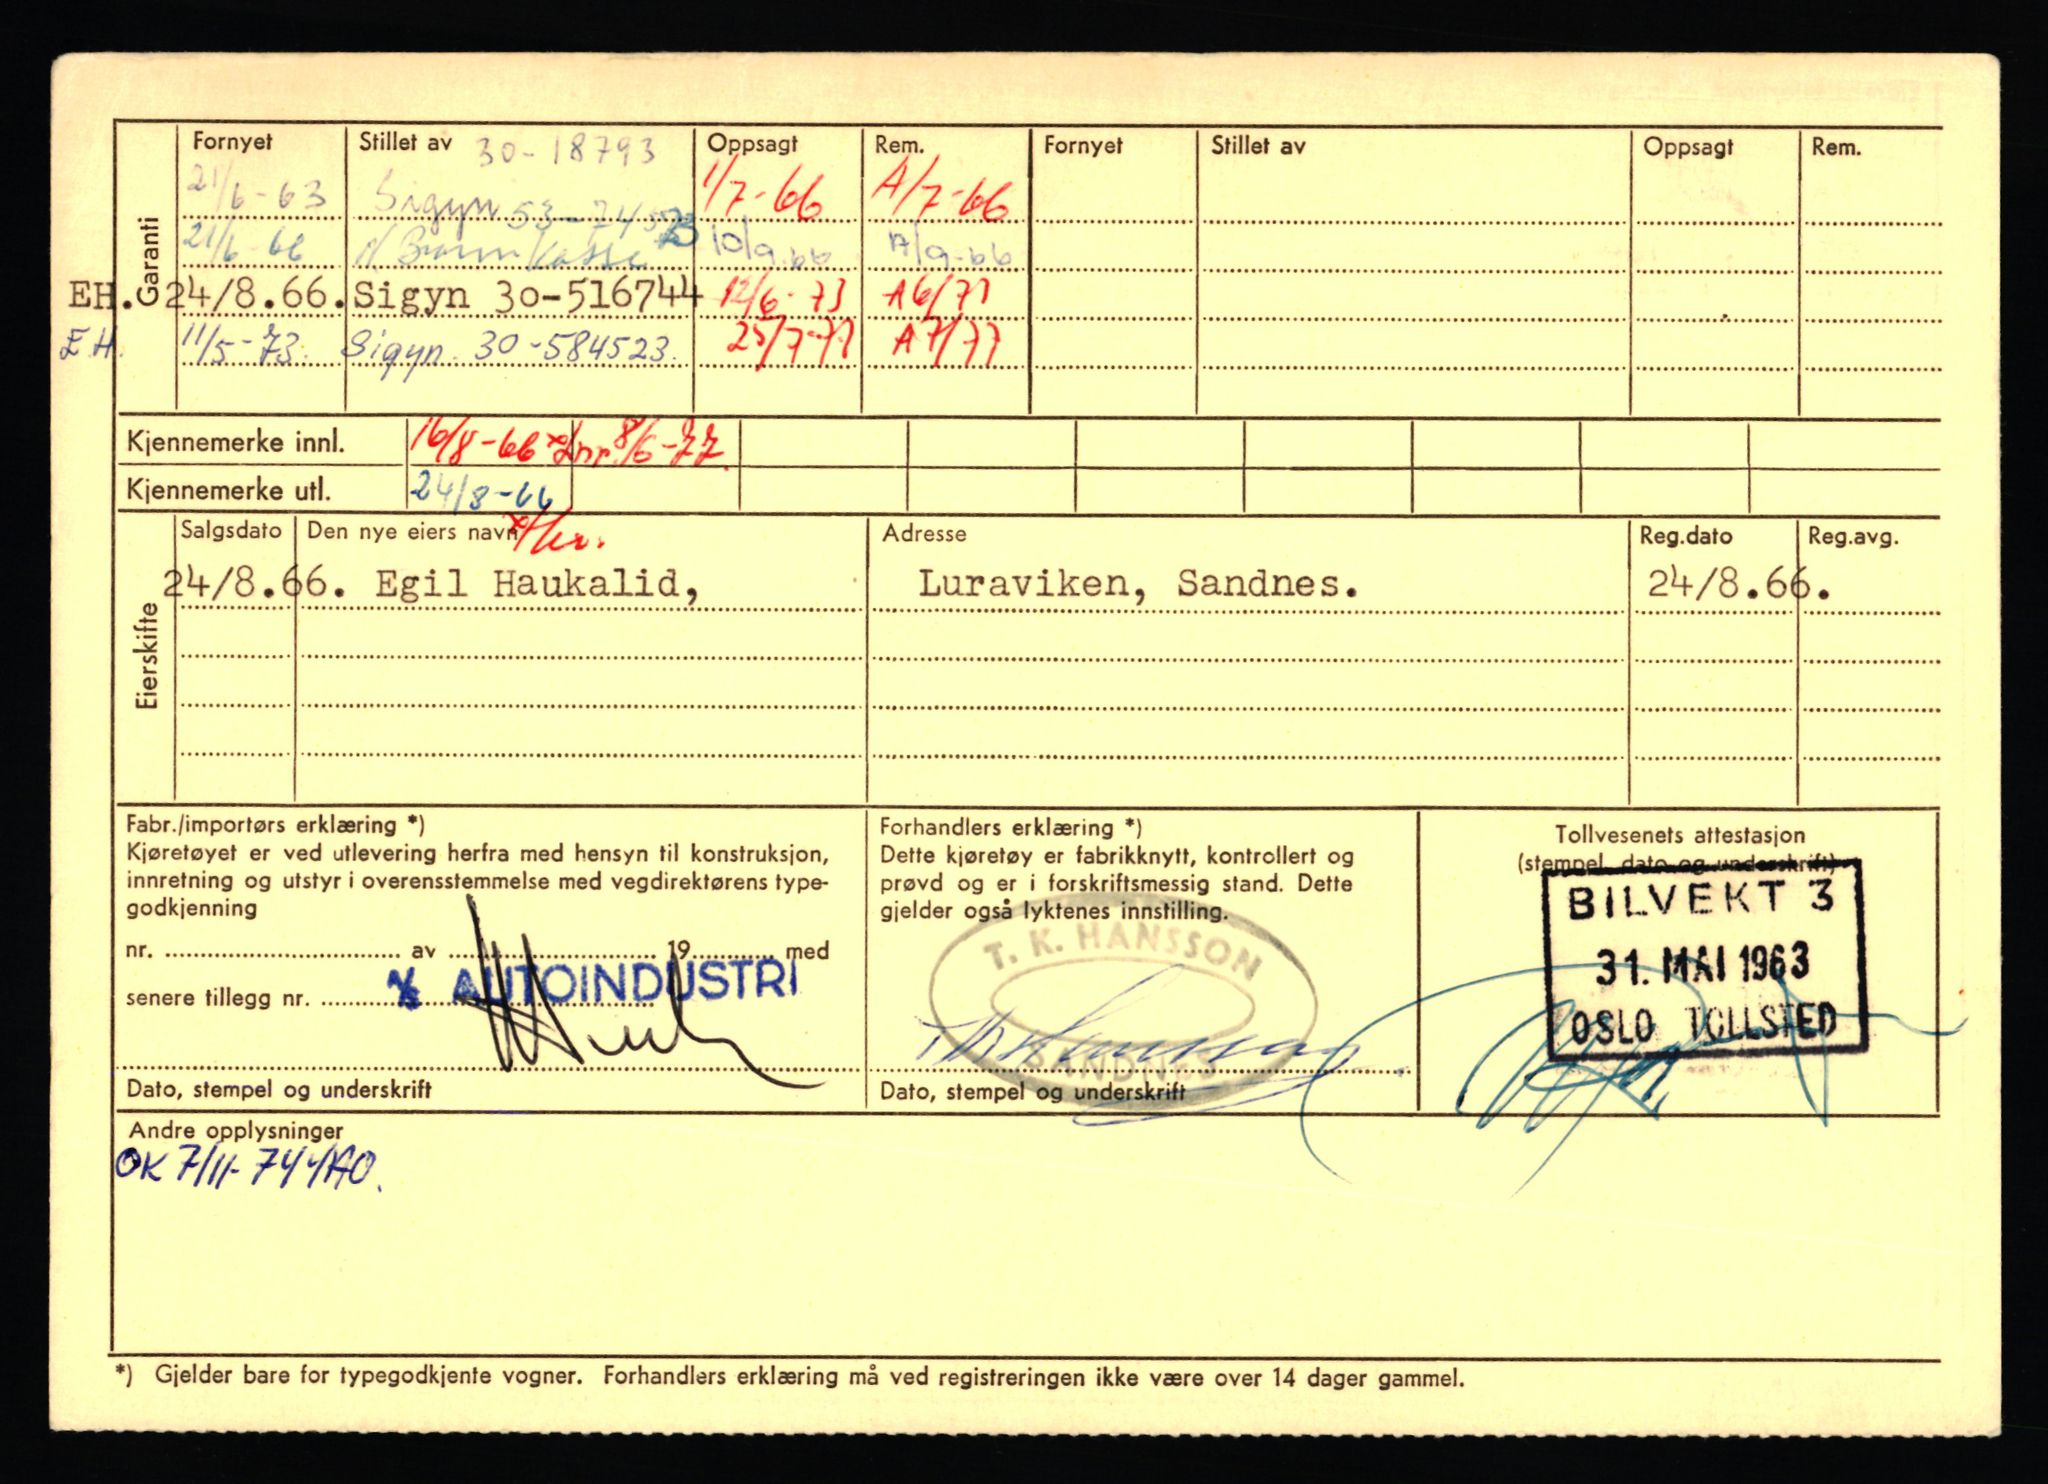 Garanti
Fornyet Stillet av 30-18793 Oppsagt Rem. Fornyet Stillet av Oppsagt Rem.
21/6-63 Sigyn 53-745 1/7-66 A/7-66
21/6-66 Kasse 10/9.66 A/9-66
EH. 24/8.66. Sigyn 30-516744 12/6-73 A6/73
EH. 11/5-73. Sigyn 30-584523. 25/7-77 A7/77
Kjennemerke innl. 16/8-66 8/6-77.
Kjennemerke utl. 24/8-66
Eierskifte
Salgsdato Den nye eiers navn Adresse Reg.dato Reg.avg.
24/8.66. Egil Haukalid, Luraviken, Sandnes. 24/8.66.
Fabr./importørs erklæring *)
Kjøretøyet er ved utlevering herfra med hensyn til konstruksjon,
innretning og utstyr i overensstemmelse med vegdirektørens type-
godkjenning
nr. av 19 med
senere tillegg nr.
A/S AUTOINDUSTRI
Dato, stempel og underskrift
Forhandlers erklæring *)
Dette kjøretøy er fabrikknytt, kontrollert og
prøvd og er i forskriftsmessig stand. Dette
gjelder også lyktenes innstilling.
T. K. HANSSON
SANDNES
Dato, stempel og underskrift
Tollvesenets attestasjon
(stempel, dato og underskrift)
BILVEKT 3
31. MAI 1963
OSLO TOLLSTED
Andre opplysninger
OK 7/11-74
*) Gjelder bare for typegodkjente vogner. Forhandlers erklæring må ved registreringen ikke være over 14 dager gammel.